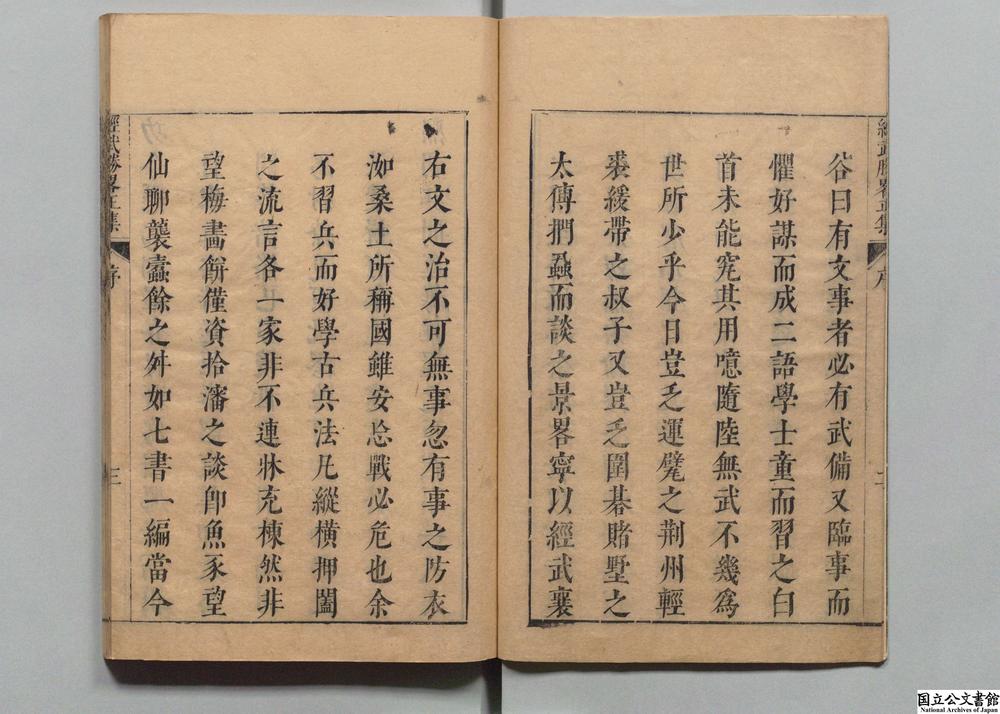 谷曰有文事者必有武備又臨事而
懼好謀而成二語學士童而習之白
首未能究其用噫隨陸無武不幾為
世所少乎今日豈乏運甓之荆州輕
裘緩帶之叔子又豈乏圍碁賭墅之
太傅捫蝨而談之景畧寧以經武襄
右文之治不可無事忽有事之防衣
洳桑土所稱國雖安忘戰必危也余
不習兵而好學古兵法凡縱横押闔
之流言各一家非不連牀充棟然非
望梅畵餅僅資拾瀋之談卽魚豕望
仙聊襲蠧餘之舛如七書一編當今
經武勝畧正集
序
三
經武勝畧正集
序
二
国立公文書館
National Archives of Japan